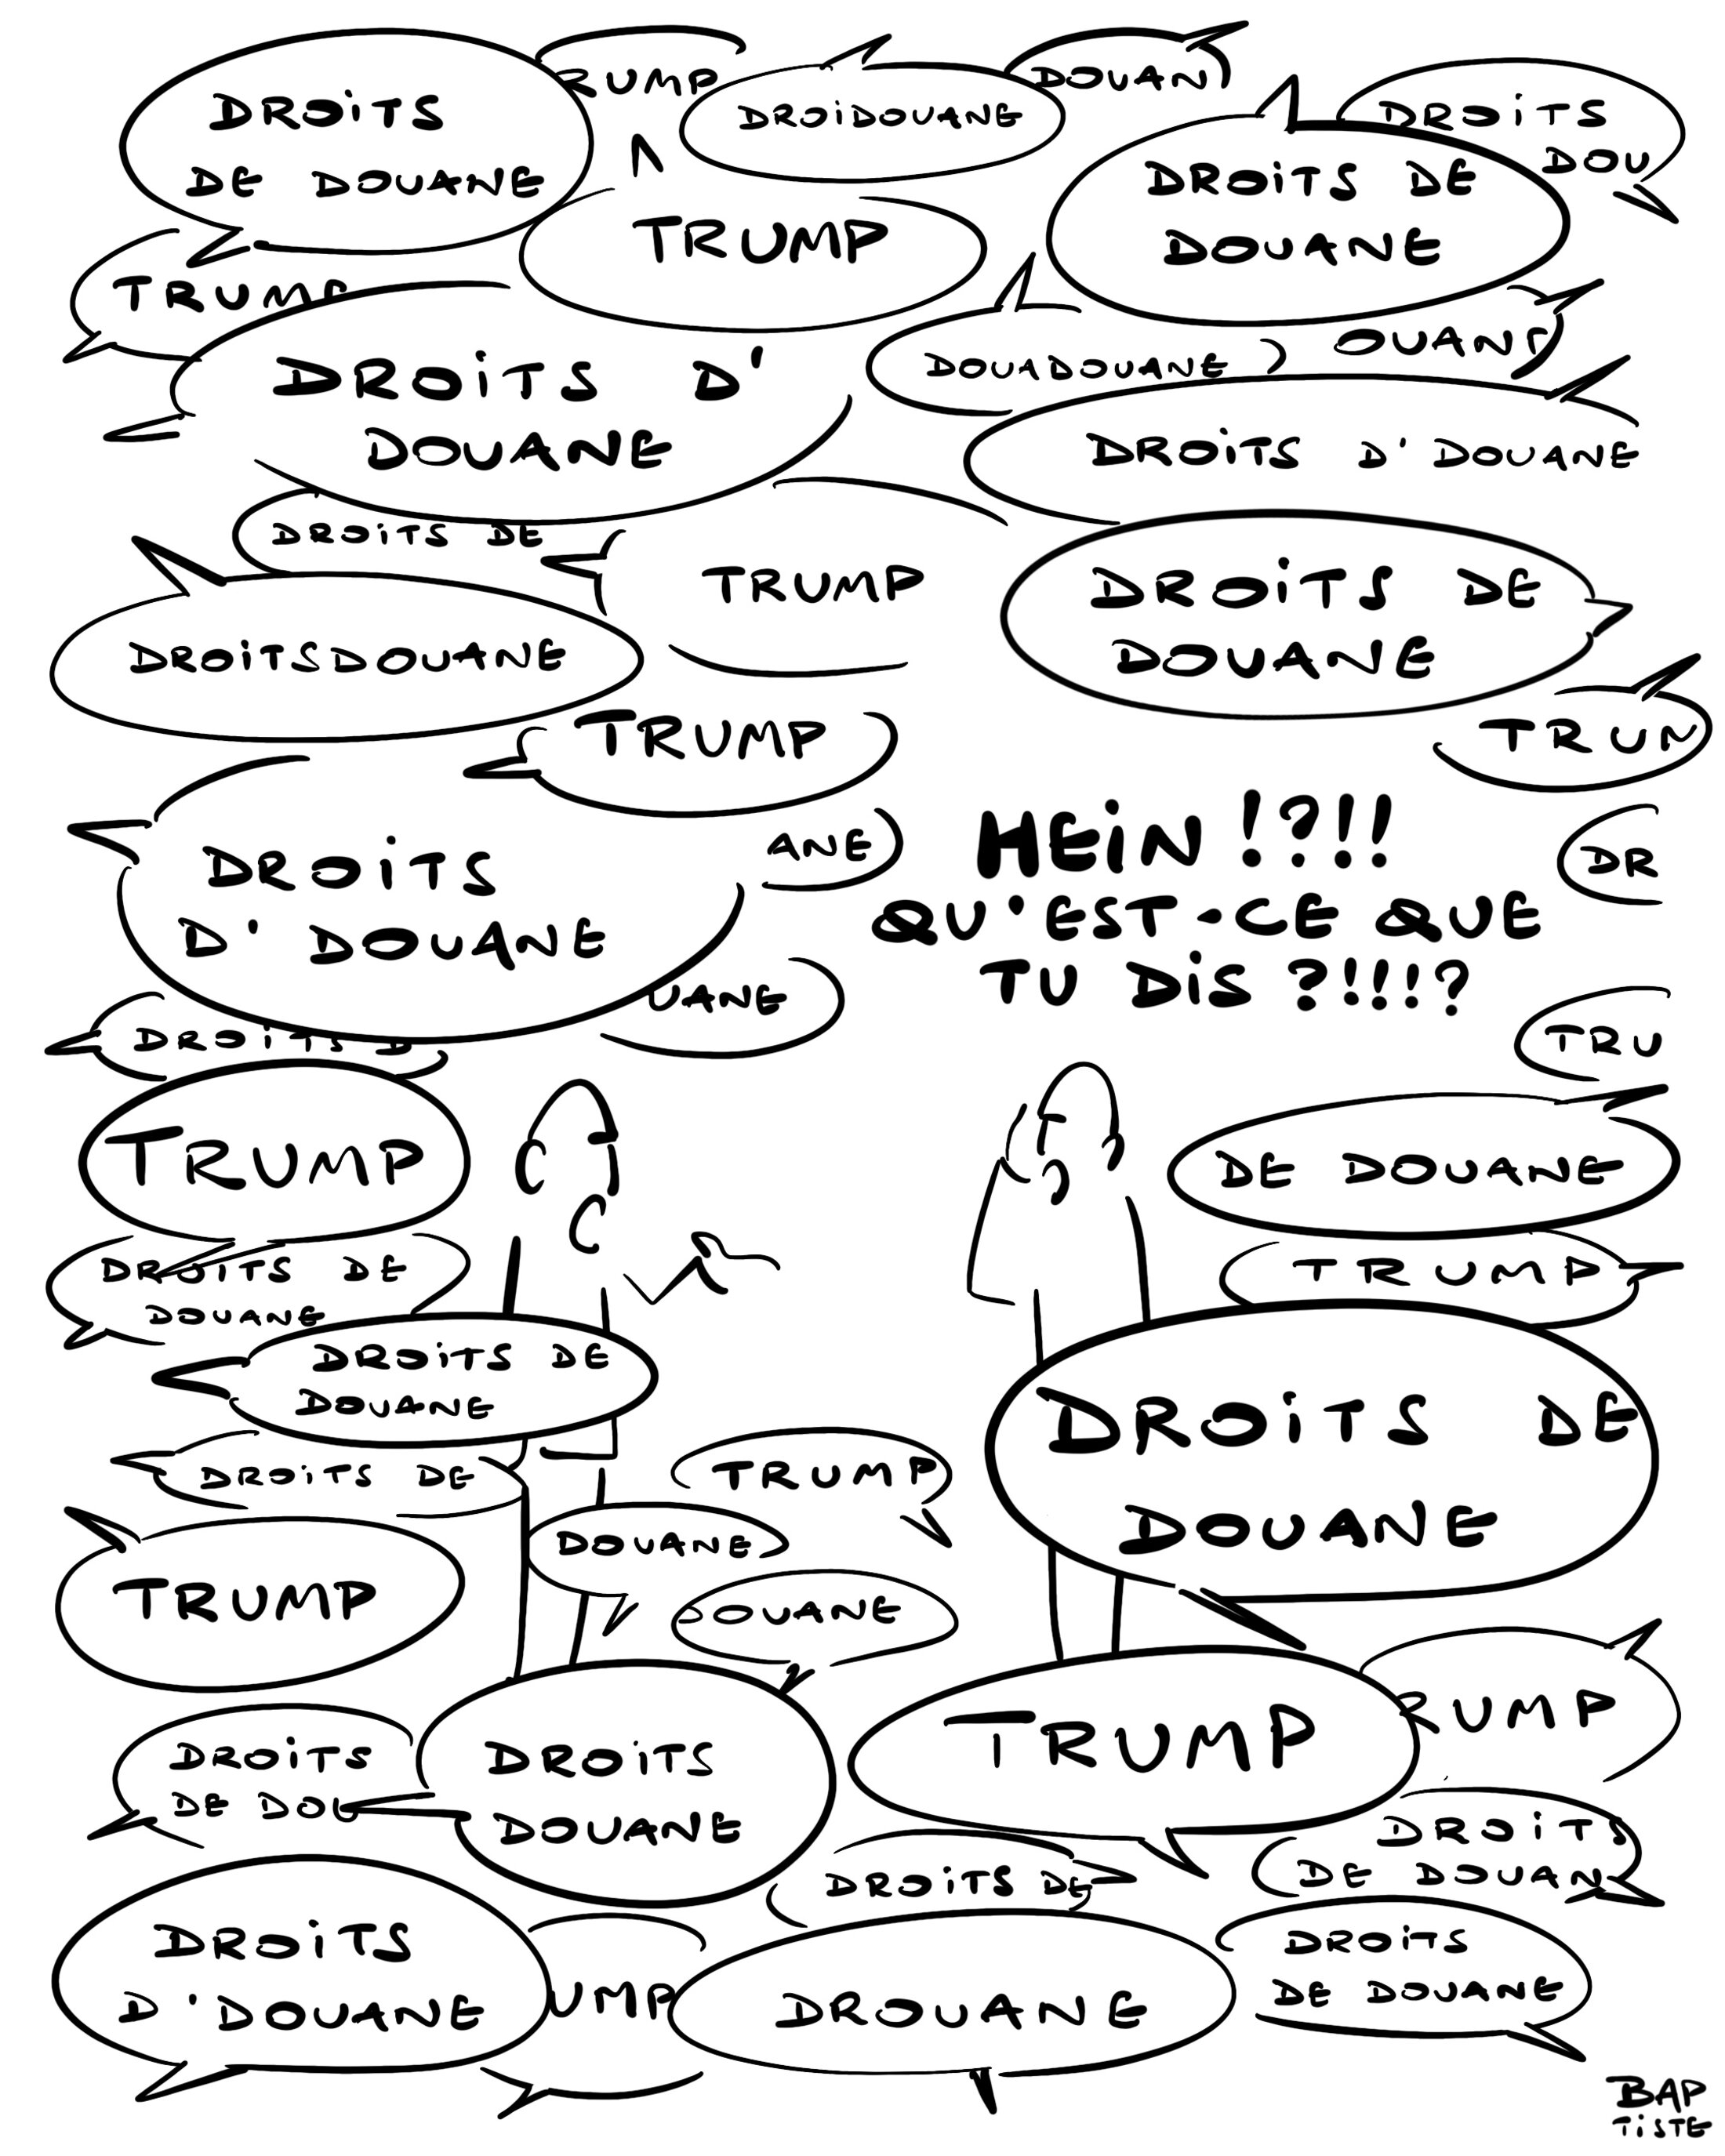 DROITS
DE DOUANE
RUMP
DROIDOUANE
DOUAN
DROITS
DOU
TRUMP
DROITS DE
DOUANE
TRUMP
DROITS D'
DOUANE
DOUADOUANE
OUANE
DROITS D'DOUANE
DROITS DE
TRUMP
DROITS DE
DOUANE
DROITSDOUANE
TRUMP
TRUM
DROITS
D'DOUANE
ANE
HEIN !?!!
QU'EST-CE QUE
TU DIS ?!!!?
DR
UANE
DROITS D
TRU
TRUMP
DE DOUANE
DROITS DE
DOUANE
TRUMP
DROITS DE
DOUANE
DROITS DE
DOUANE
DROITS DE
TRUMP
DOUANE
TRUMP
DOUANE
DROITS
DE DOU
DROITS
DOUANE
TRUMP
RUMP
DROITS
DE DOUAN
DROITS DE
DROITS
D'DOUANE
UMP
DROUANE
DROITS
DE DOUANE
BAP
TISTE